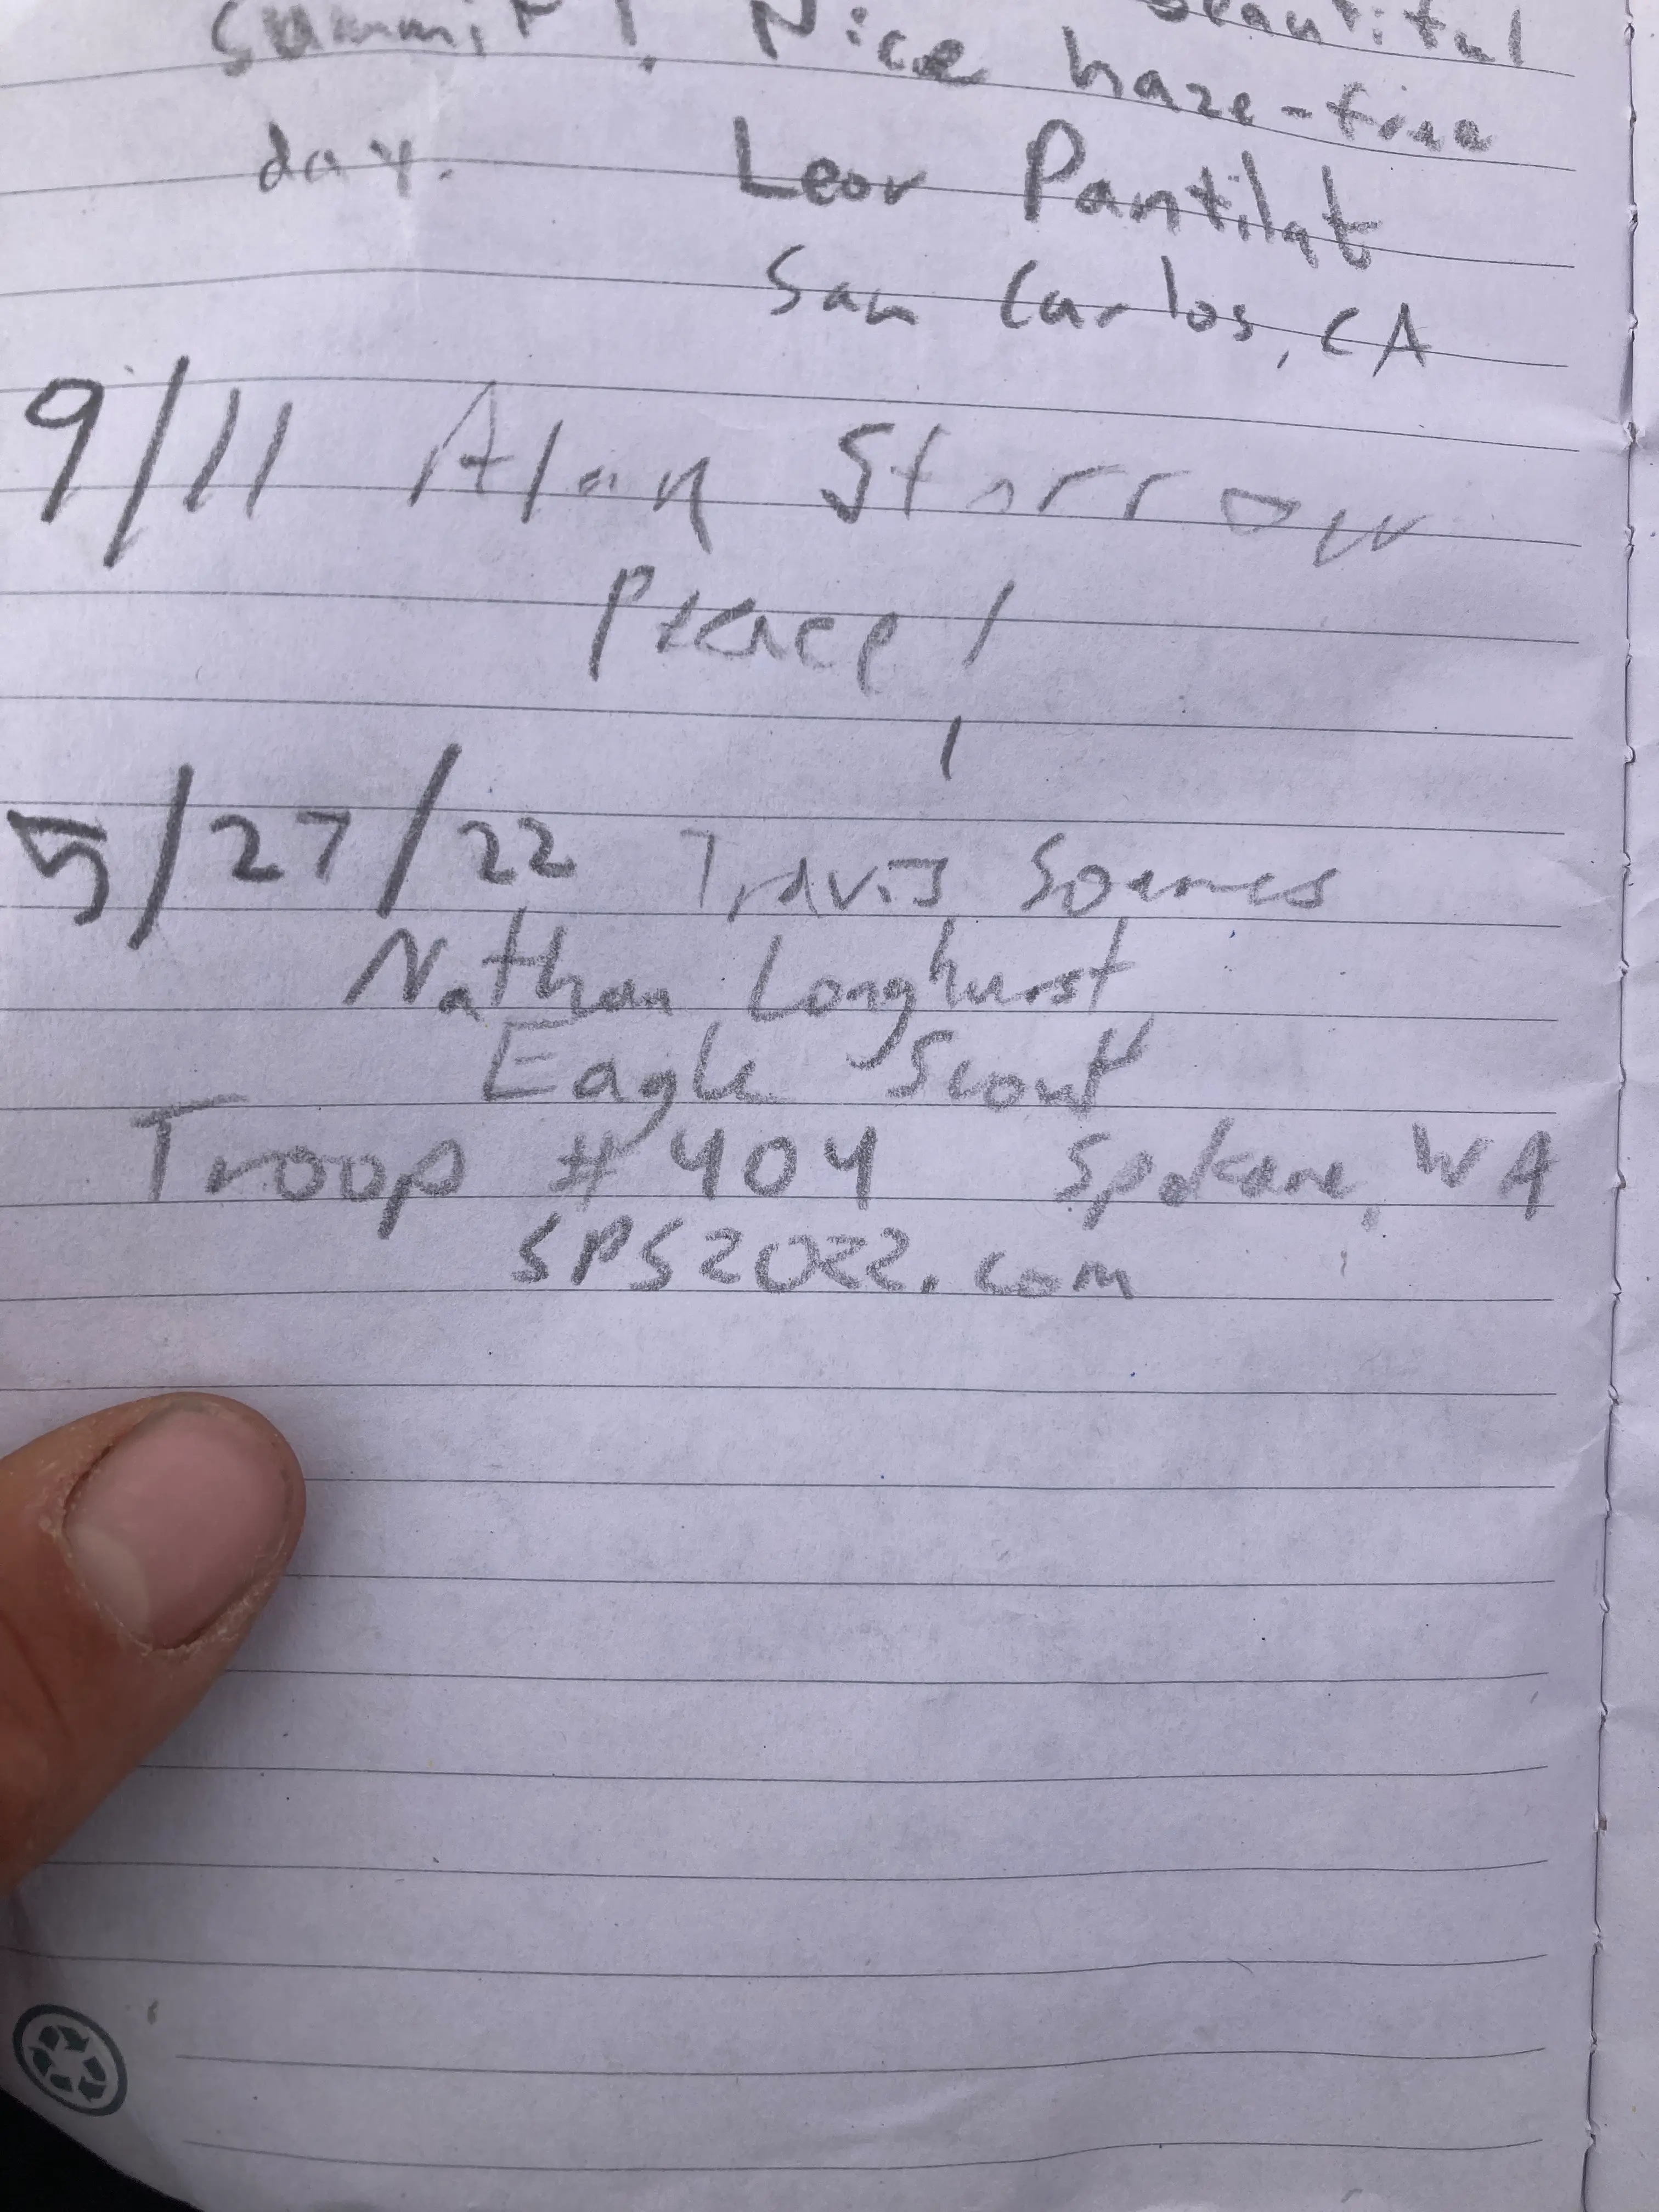 beautiful
summit! Nice haze-free
day.
Leor Pantilat
San Carlos, CA
9/11 Alan Storrow
Peace!
5/27/22 Travis Soares
Nathan Longhurst
Eagle Scout
Troop #404 Spokane, WA
SPS2022.com